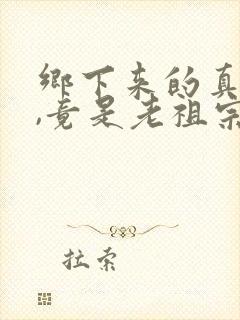 鄉下來的真
,竟是老祖宗
拉索